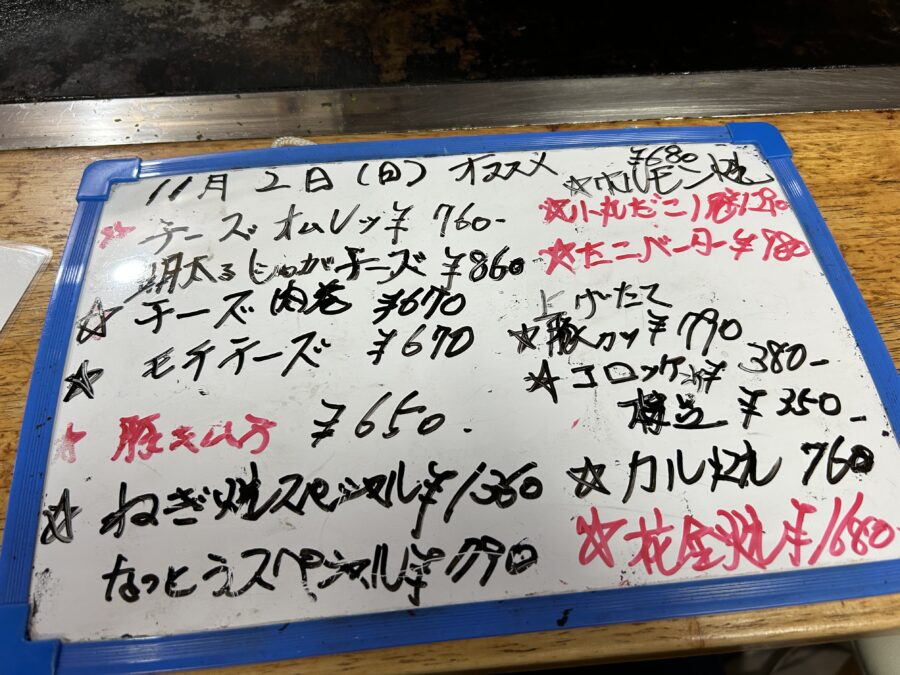 11月2日(日) オススメ
☆チーズオムレツ ¥760-
明太るじゃがチーズ ¥860
☆チーズ肉巻 ¥670
☆モチチーズ ¥670
☆豚キムチ ¥650.
☆ねぎ焼スペシャル ¥1360
なっとうスペシャル ¥790
¥680
☆ホルモン焼
☆小丸だこ
☆たこバター ¥980
上げたて
☆豚カツ ¥790
☆コロッケ ¥380-
¥350-
☆カル焼 760
☆花金焼 ¥1680-